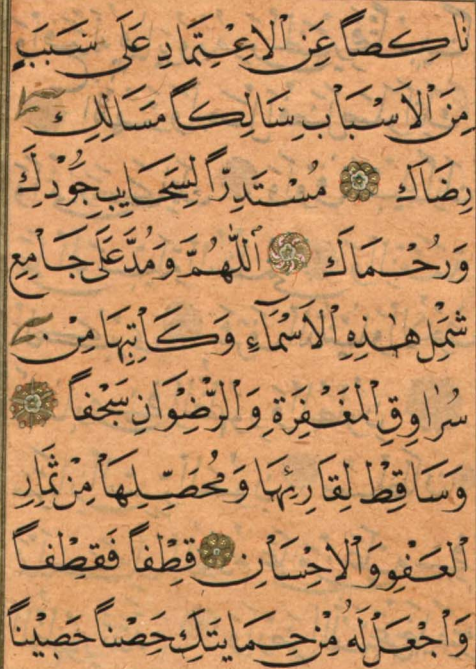 نَاكِصاً عَنِ الْاِعْتِمَادِ عَلَى سَبَبٍ
مِنَ الْاَسْبَابِ سَالِكاً مَسَالِكَ
رِضَاكَ مُسْتَدِرّاً لِسَحَايِبِ جُوْدِكَ
وَرُحْمَاكَ اَللّٰهُمَّ وَمُدَّ عَلَى جَامِعِ
شَمْلِ هٰذِهِ الْاَسْمَآءِ وَكَاتِبِهَا مِنْ
سُرَاوِقِ الْمَغْفِرَةِ وَالرِّضْوَانِ سَجْفاً
وَسَاقِطْ لِقَارِئِهَا وَمُحَصِّلِهَا مِنْ ثِمَارِ
الْعَفْوِ وَالْاِحْسَانِ قِطْفاً فَقِطْفاً
وَاجْعَلْ لَهُ مِنْ حِمَايَتِكَ حِصْناً حَصِيْناً